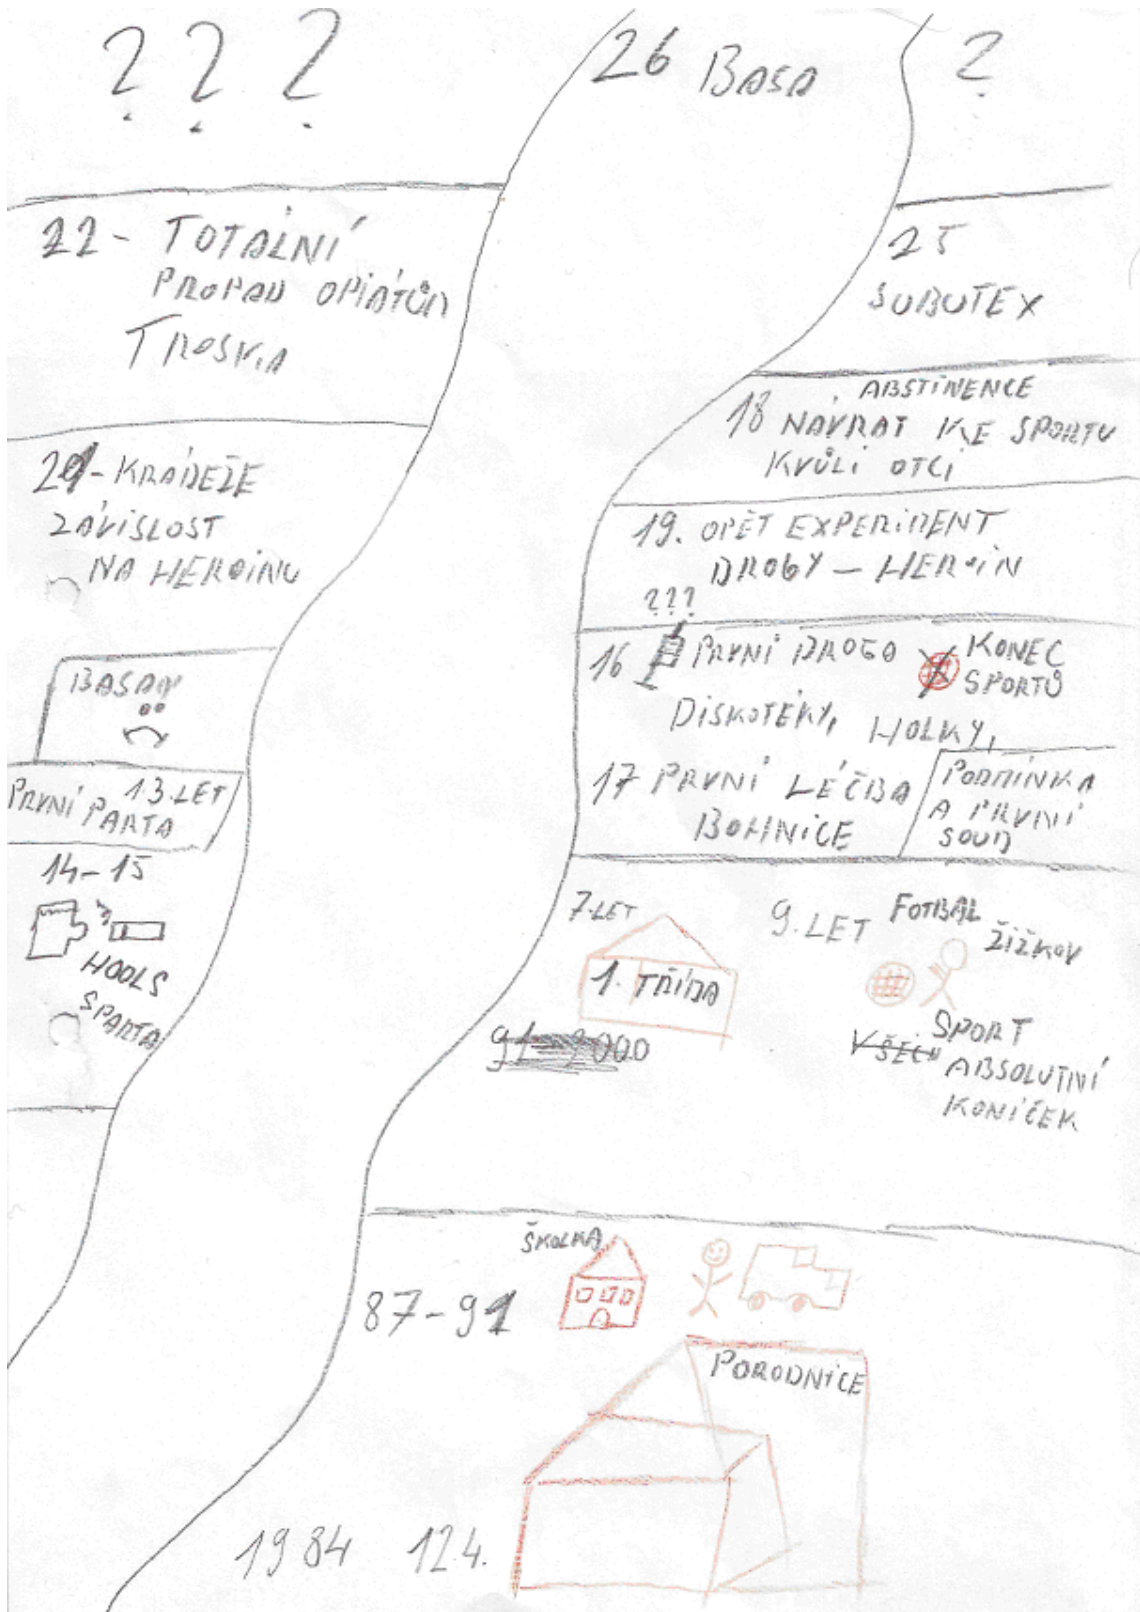 ? ? ?
26 BASA
?
22 - TOTÁLNÍ
PROPAD OPIÁTŮM
TROSKA
25
SUBUTEX
ABSTINENCE
18 NÁVRAT KE SPORTU
KVŮLI OTCI
21 - KRÁDEŽE
ZÁVISLOST
NA HEROINU
19. OPĚT EXPERIMENT
DROGY - HEROIN
???
16 PRVNÍ DROGO
KONEC
SPORTŮ
DISKOTÉKY, HOLKY,
17 PRVNÍ LÉČBA
BOHNICE
PODMÍNKA
A PRVNÍ
SOUD
13. LET
PRVNÍ PARTA
14-15
HOOLS
SPARTA
7. LET
1. TŘÍDA
9. LET
FOTBAL
ŽIŽKOV
SPORT
VŠECH
ABSOLUTNÍ
KONÍČEK
ŠKOLKA
87-91
PORODNICE
1984 12.4.